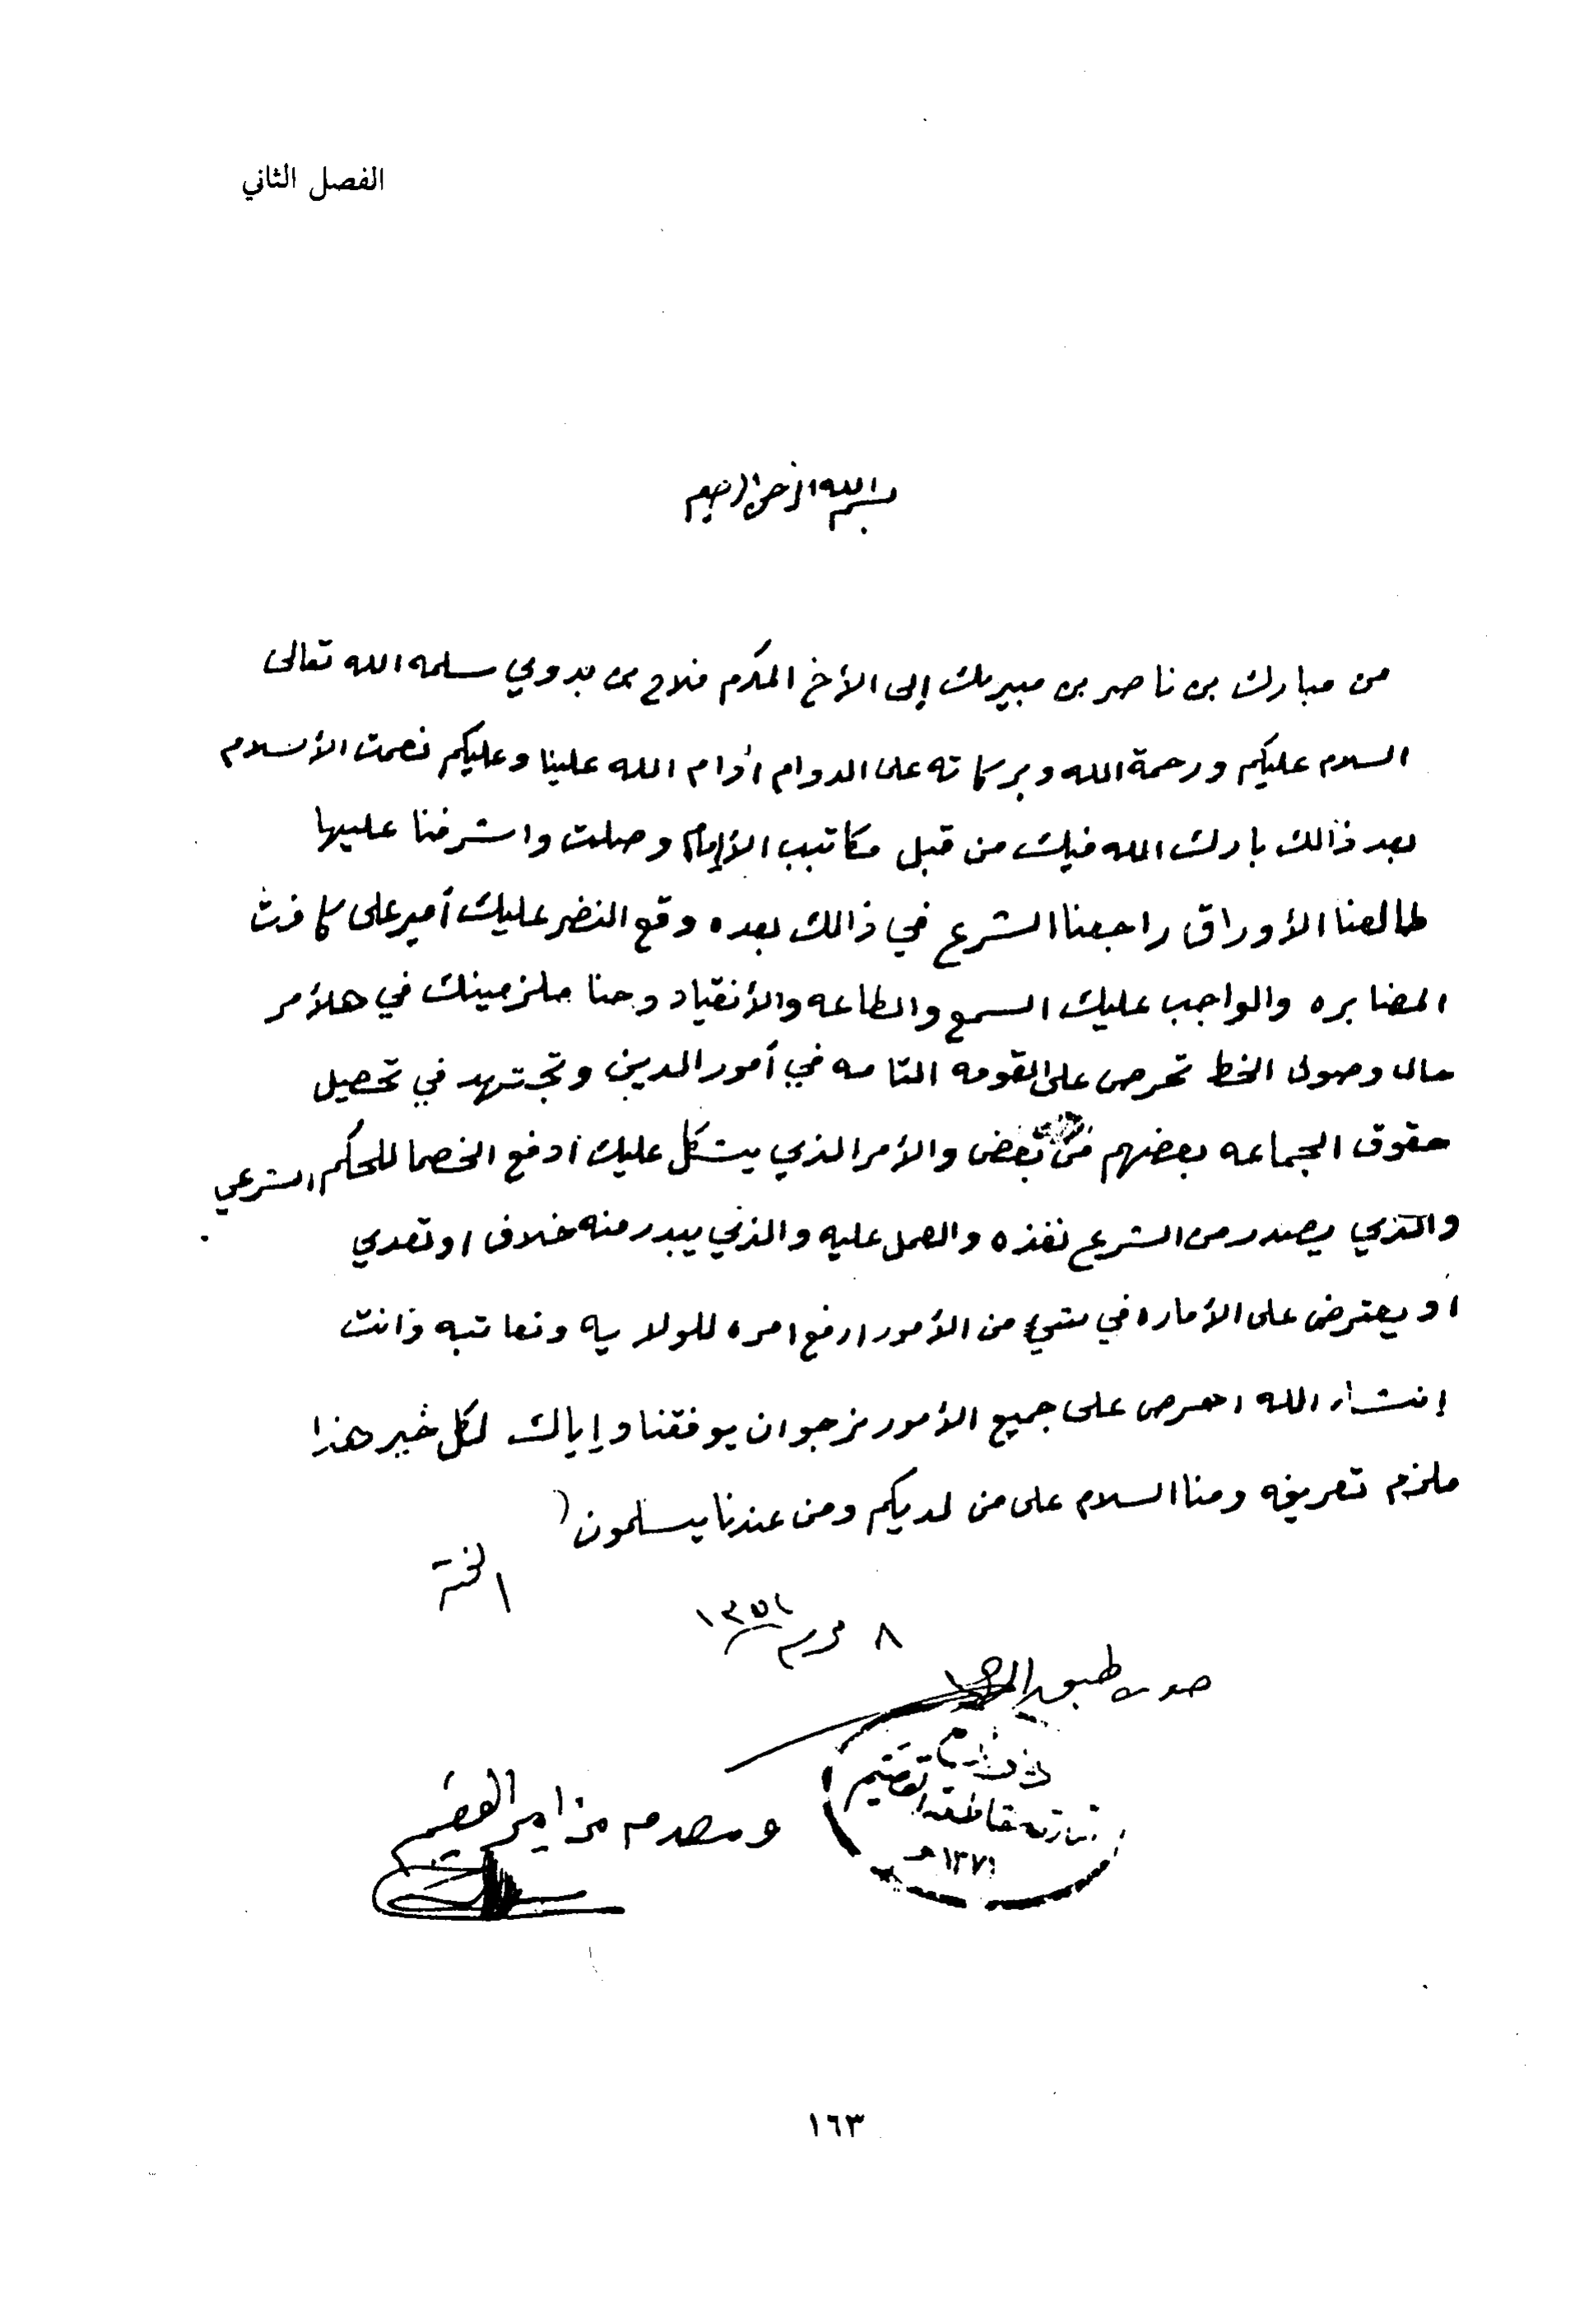 الفصل الثاني
بسم الله الرحمن الرحيم
من مبارك بن ناصر بن مبيريك إلى الأخ المكرم فلاح بن بدوي سلمه الله تعالى
السلام عليكم ورحمة الله وبركاته على الدوام أدام الله علينا وعليكم نعمت الأسلام
بعد ذالك بارك الله فيك من قبل مكاتيب الأمام وصلت واشرفنا عليها
طالعنا الأوراق راجعنا الشرع في ذالك بعده وقع النضر عليك أمير على كافت
المضابره والواجب عليك السمع والطاعه والأنقياد وحنا ملزمينك في هلأمر
حال وصول الخط تحرص على القومه التامه في أمور الدين وتجتهد في تحصيل
حقوق الجماعه بعضهم من بعض والأمر الذي يشكل عليك أدفع الخصما للحكم الشرعي
والذي يصدر من الشرع نفذه والعمل عليه والذي يبدر منه خلاف او تعدي
او يعترض على الأماره في شيء من الأمور ارفع امره للولايه ونعاتبه وانت
إنشاء الله احرص على جميع الأمور نرجوان يوفقنا وإياك لكل خير هذا
ملزم تعريفه ومنا السلام على من لديكم ومن عندنا يسلمون
الختم
٨ محرم ١٣٥١
صورة طبق الاصل
١٣٧١هـ
ومصدق من امير القصيم
١٦٣